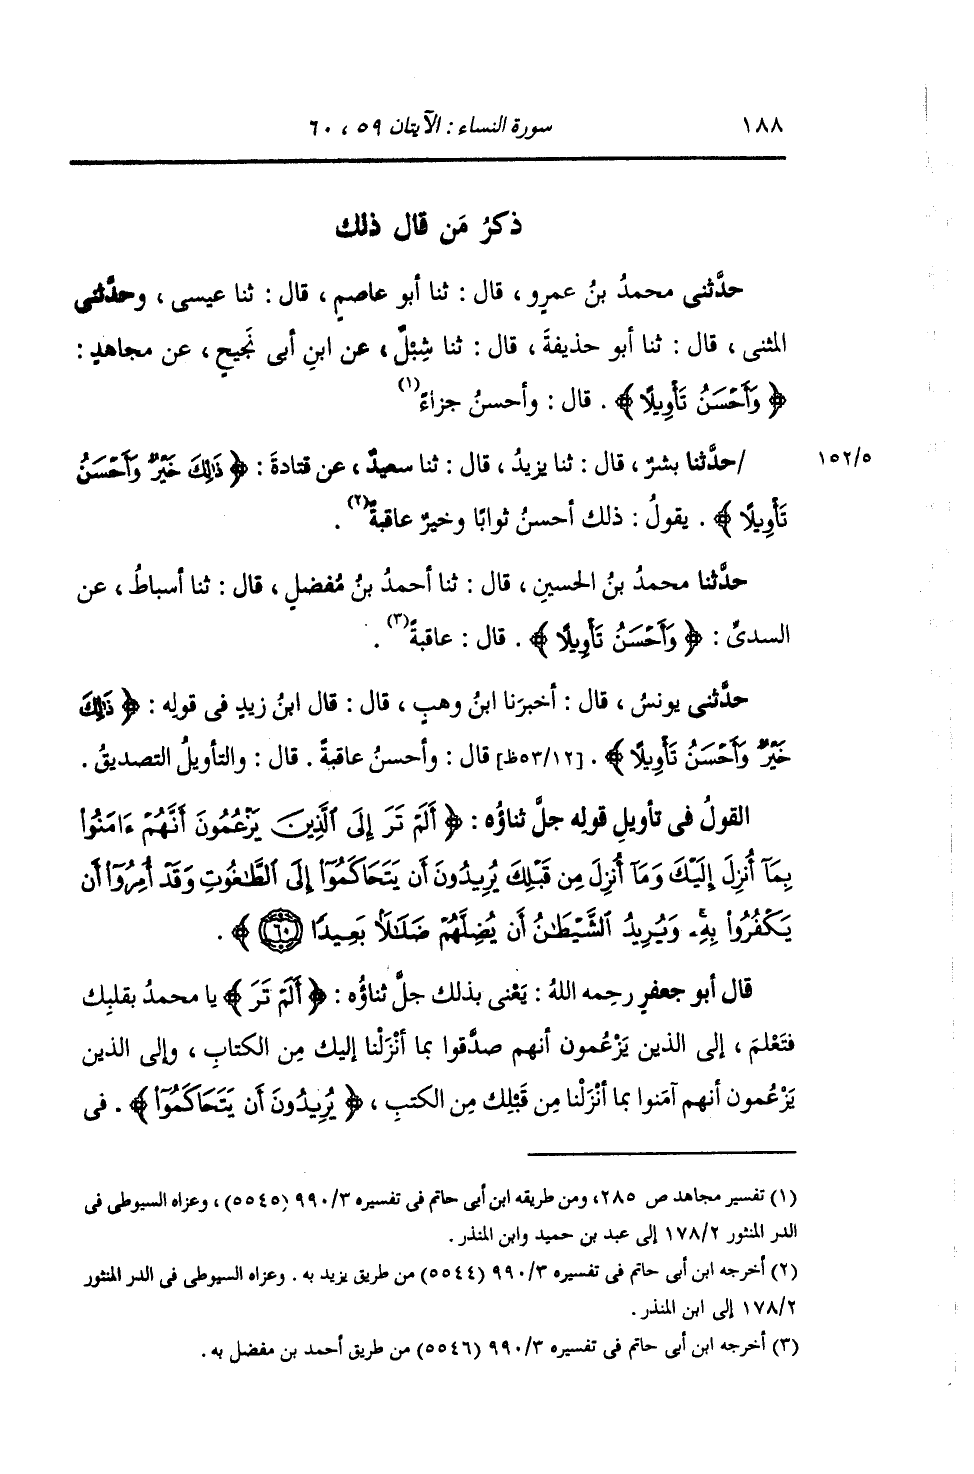 ١٨٨ سورة النساء : الآيتان ٥٩ ، ٦٠
ذكرُ مَن قال ذلك
حدَّثنى محمدُ بنُ عمرٍو ، قال : ثنا أبو عاصمٍ ، قال : ثنا عيسى ، وحدَّثنى
المثنى ، قال : ثنا أبو حذيفةَ ، قال : ثنا شِبْلٌ ، عن ابنِ أبى نَجيحٍ ، عن مجاهدٍ :
﴿ وَأَحْسَنُ تَأْوِيلًا ﴾ . قال : وأحسنُ جزاءً(١)
/حدَّثنا بشرٌ ، قال : ثنا يزيدُ ، قال : ثنا سعيدٌ ، عن قتادةَ : ﴿ ذَٰلِكَ خَيْرٌ وَأَحْسَنُ ١٥٢/٥
تَأْوِيلًا ﴾ . يقولُ : ذلك أحسنُ ثوابًا وخيرٌ عاقبةً(٢) .
حدَّثنا محمدُ بنُ الحسينِ ، قال : ثنا أحمدُ بنُ مُفضلٍ ، قال : ثنا أسباطُ ، عن
السدىِّ : ﴿ وَأَحْسَنُ تَأْوِيلًا ﴾ . قال : عاقبةً(٣) .
حدَّثنى يونسُ ، قال : أخبرَنا ابنُ وهبٍ ، قال : قال ابنُ زيدٍ فى قولِه : ﴿ ذَٰلِكَ
خَيْرٌ وَأَحْسَنُ تَأْوِيلًا ﴾ . [٥٣/١٢ظ] قال : وأحسنُ عاقبةً . قال : والتأويلُ التصديقُ .
القولُ فى تأويلِ قولِه جلَّ ثناؤُه : ﴿ أَلَمْ تَرَ إِلَى ٱلَّذِينَ يَزْعُمُونَ أَنَّهُمْ ءَامَنُوا۟
بِمَآ أُنزِلَ إِلَيْكَ وَمَآ أُنزِلَ مِن قَبْلِكَ يُرِيدُونَ أَن يَتَحَاكَمُوٓا۟ إِلَى ٱلطَّٰغُوتِ وَقَدْ أُمِرُوٓا۟ أَن
يَكْفُرُوا۟ بِهِۦ وَيُرِيدُ ٱلشَّيْطَٰنُ أَن يُضِلَّهُمْ ضَلَٰلًۢا بَعِيدًا ﴿٦٠﴾ ﴾ .
قال أبو جعفرٍ رحِمه اللهُ : يَعْنى بذلك جلَّ ثناؤُه : ﴿ أَلَمْ تَرَ ﴾ يا محمدُ بقلبِك
فتَعْلمَ ، إلى الذين يَزْعُمون أنهم صدَّقوا بما أنْزَلْنا إليك مِن الكتابِ ، وإلى الذين
يَزْعُمون أنهم آمَنوا بما أنْزَلْنا مِن قَبْلِك مِن الكتبِ ، ﴿ يُرِيدُونَ أَن يَتَحَاكَمُوٓا۟ ﴾ . فى
(١) تفسير مجاهد ص ٢٨٥، ومن طريقه ابن أبى حاتم فى تفسيره ٩٩٠/٣ (٥٥٤٥) ، وعزاه السيوطى فى
الدر المنثور ١٧٨/٢ إلى عبد بن حميد وابن المنذر .
(٢) أخرجه ابن أبى حاتم فى تفسيره ٩٩٠/٣ (٥٥٤٤) من طريق يزيد به . وعزاه السيوطى فى الدر المنثور
١٧٨/٢ إلى ابن المنذر .
(٣) أخرجه ابن أبى حاتم فى تفسيره ٩٩٠/٣ (٥٥٤٦) من طريق أحمد بن مفضل به .